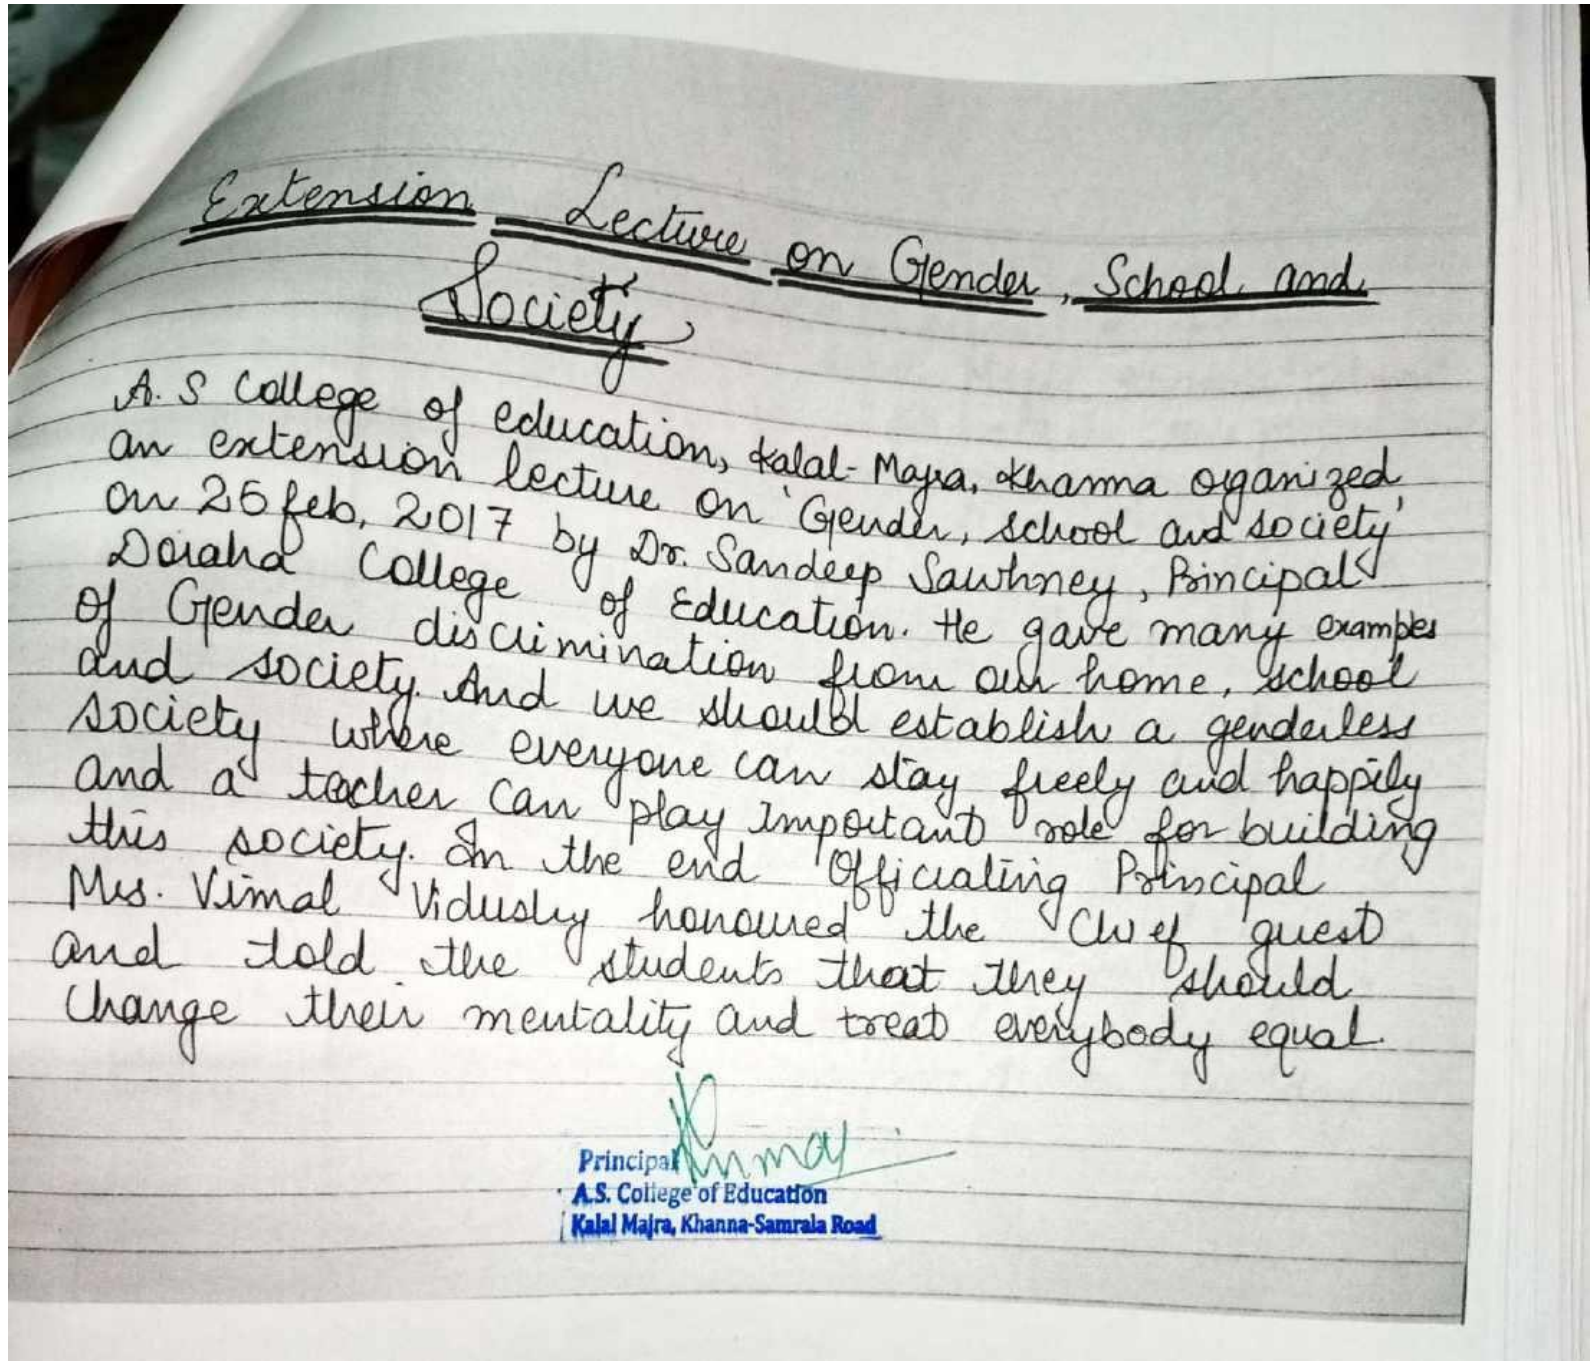 Extension Lecture on Gender, School and
Society
A. S College of education, Kalal-Majra, Khanna organized
an extension lecture on 'Gender, school and society'
on 25 feb, 2017 by Dr. Sandeep Sawhney, Principal
Doraha College of Education. He gave many examples
of Gender discrimination from our home, school
and society. And we should establish a genderless
society where everyone can stay freely and happily
and a teacher can play Important role for building
this society. In the end Officiating Principal
Mrs. Vimal Vidushy honoured the Chief guest
and told the students that they should
Change their mentality and treat everybody equal.
Principal
A.S. College of Education
Kalal Majra, Khanna-Samrala Road